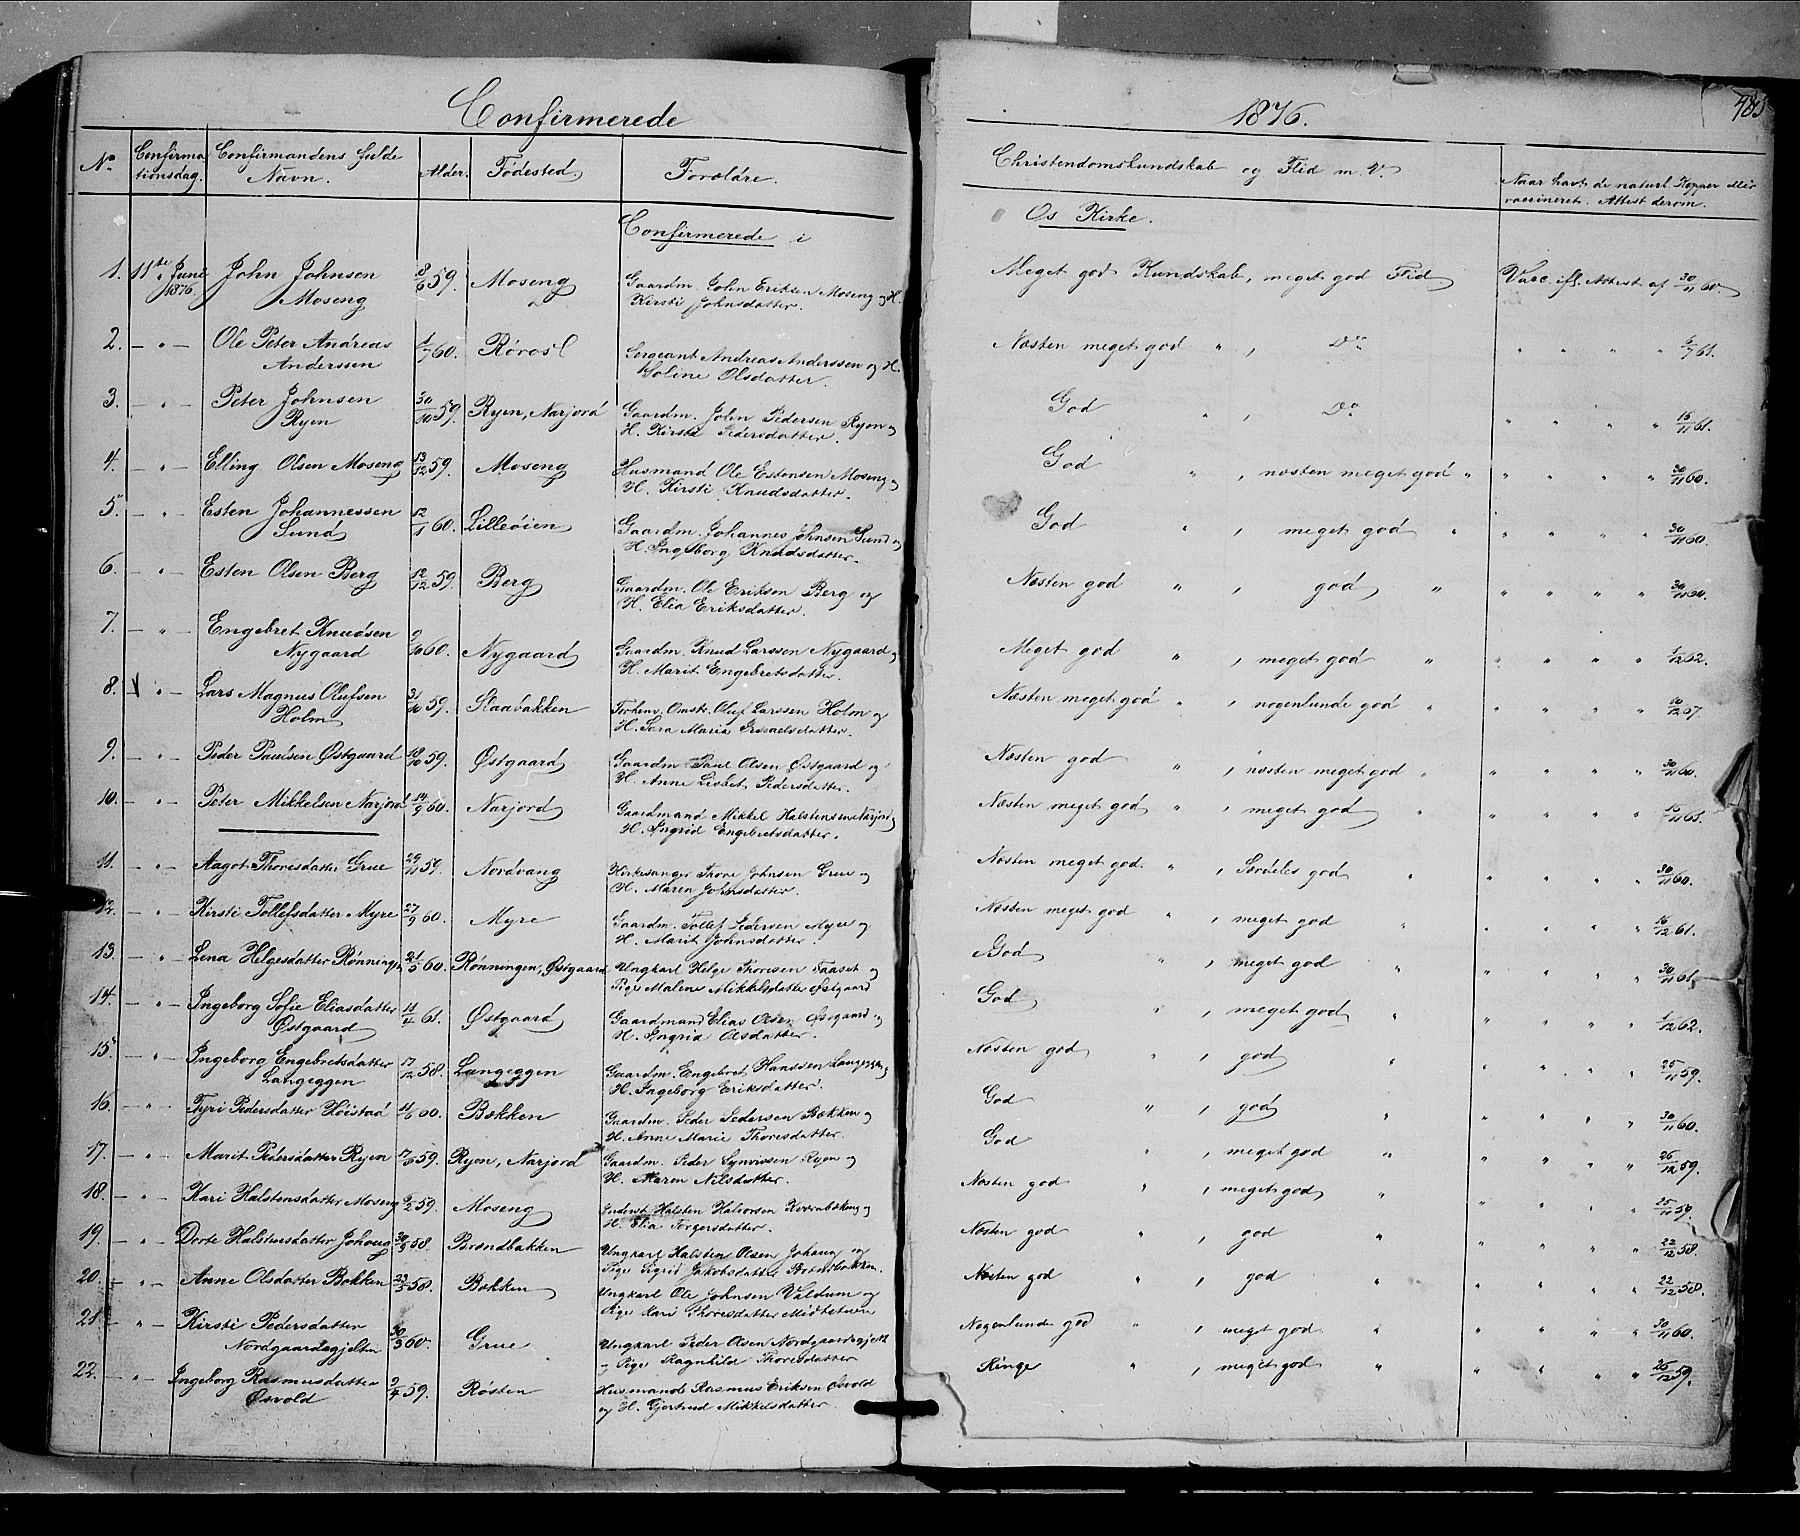 Confirmerede
1876.
485
No
Confirmationsdag.
Confirmandens fulde Navn.
Alder.
Fødested.
Forældre.
Christendomskundskab og Flid m. V.
Naar havt de naturl. Kopper eller vaccineret. Attest derom.
Confirmerede i
Os Kirke.
1. 11te Juni 1876. John Johnsen Moseng 8/6 59. Moseng Gaardm. John Eriksen Moseng og H. Kirsti Johnsdatter. Meget god Kundskab, meget god Flid Vacc. ifl. Attest af 30/11 60.
2. – " – Ole Peter Andreas Anderssen 1/7 60. Røros Sergeant Andreas Anderssen og H. Soline Olsdatter. Næsten meget god " , Do " " " " 6/7 61.
3. – " – Peter Johnsen Ryen 30/10 59. Ryen, Narjord Gaardm. John Pedersen Ryen og H. Kirsti Pedersdatter. God " , Do " " " " 16/11 61.
4. – " – Elling Olsen Moseng 13/12 59. Moseng Husmand Ole Estensen Moseng og H. Kirsti Knudsdatter. God " , næsten meget god " " " " " 30/11 60.
5. – " – Esten Johannessen Sund 12/1 60. Lilleøien Gaardm. Johannes Johnsen Sund og H. Ingeborg Knudsdatter. God " , meget god " " " " " 30/11 60.
6. – " – Esten Olsen Berg 12/12 59. Berg Gaardm. Ole Eriksen Berg og H. Elia Eriksdatter. Næsten god " , god " " " " " 30/11 60.
7. – " – Engebret Knudsen Nygaard 9/10 60. Nygaard Gaardm. Knud Larssen Nygaard og H. Marit Engebretsdatter. Meget god " , meget god " " " " " 1/12 62.
8. – " – Lars Magnus Olufsen Holm 31/10 59. Slaabakken Forhenv. Omstr. Oluf Larssen Holm og H. Sara Maria Israelsdatter. Næsten meget god " , nogenlunde god " " " " "
9. – " – Peder Paulsen Østgaard 18/10 59. Østgaard Gaardm. Paul Olsen Østgaard og H. Anne Lisbet Pedersdatter. Næsten god " , næsten meget god " " " " " 30/11 60.
10. – " – Peter Mikkelsen Narjord 14/9 60. Narjord Gaardmand Mikkel Halstensen Narjord og H. Ingrid Engebretsdatter. Næsten meget god " , meget god " " " " "
11. – " – Aagot Thoresdatter Grue 29/11 59. Nordvang Kirkesanger Thore Johnsen Grue og H. Maren Johnsdatter. Næsten meget god " , Særdeles god " " " " " 30/11 60.
12. – " – Kirsti Tollefsdatter Myre 27/9 60. Myre Gaardm. Tollef Pedersen Myre og H. Marit Johnsdatter. Næsten meget god " , meget god " " " " " 16/12 61.
13. – " – Lena Helgesdatter Rønningen 21/5 60. Rønningen, Østgaard Ungkarl Helge Thoresen Faaset og Pige Malene Mikkelsdatter Østgaard God " , meget god " " " " " 30/11 61.
14. – " – Ingeborg Sofie Eliasdatter Østgaard 11/4 61. Østgaard Gaardmand Elias Olsen Østgaard og H. Ingrid Olsdatter. God " , meget god " " " " " 1/12 62.
15. – " – Ingeborg Engebretsdatter Langeggen 17/12 58. Langeggen Gaardm. Engebret Hanssen Langeggen og H. Ingeborg Eriksdatter. Næsten god " , god " " " " " 25/11 59.
16. – " – Tyri Pedersdatter Høistad 11/6 60. Bækken Gaardm. Peder Pedersen Bækken og H. Anne Marie Thoresdatter. God " , god " " " " " 30/11 60.
17. – " – Marit Pedersdatter Ryen 59. Ryen, Narjord Gaardm. Peder Synvissen Ryen og H. Maren Nilsdatter. God " , meget god " " " " " 26/12 59.
18. – " – Kari Halstensdatter Moseng 9/2 59. Moseng Inderst Halsten Halvorsen og H. Elia Torgersdatter. Næsten god " , meget god " " " " " 25/11 59.
19. – " – Dorte Halstensdatter Johaug 58. Brændbakken Ungkarl Halsten Olsen Johaug og Pige Sigrid Jakobsdatter Brændbakken. Næsten god " , god " " " " " 22/12 58.
20. – " – Anne Olsdatter Bækken 23/5 58. Bækken Ungkarl Ole Johnsen Valdum og Pige Kari Thoresdatter Midtstuen Næsten god " , god " " " " " 22/12 58.
21. – " – Kirsti Pedersdatter Nordgaardsgjelten 30/3 60. Grue Ungkarl Peder Olsen Nordgaardsgjelt og Pige Ragnhild Thoresdatter Nogenlunde god " , meget god " " " " " 30/11 60.
22. – " – Ingeborg Rasmusdatter Øsvold 2/4 59. Røsten Husmand Rasmus Eriksen Øsvold og H. Gjertrud Mikkelsdatter. Ringe " , meget god " " " " " 26/12 59.